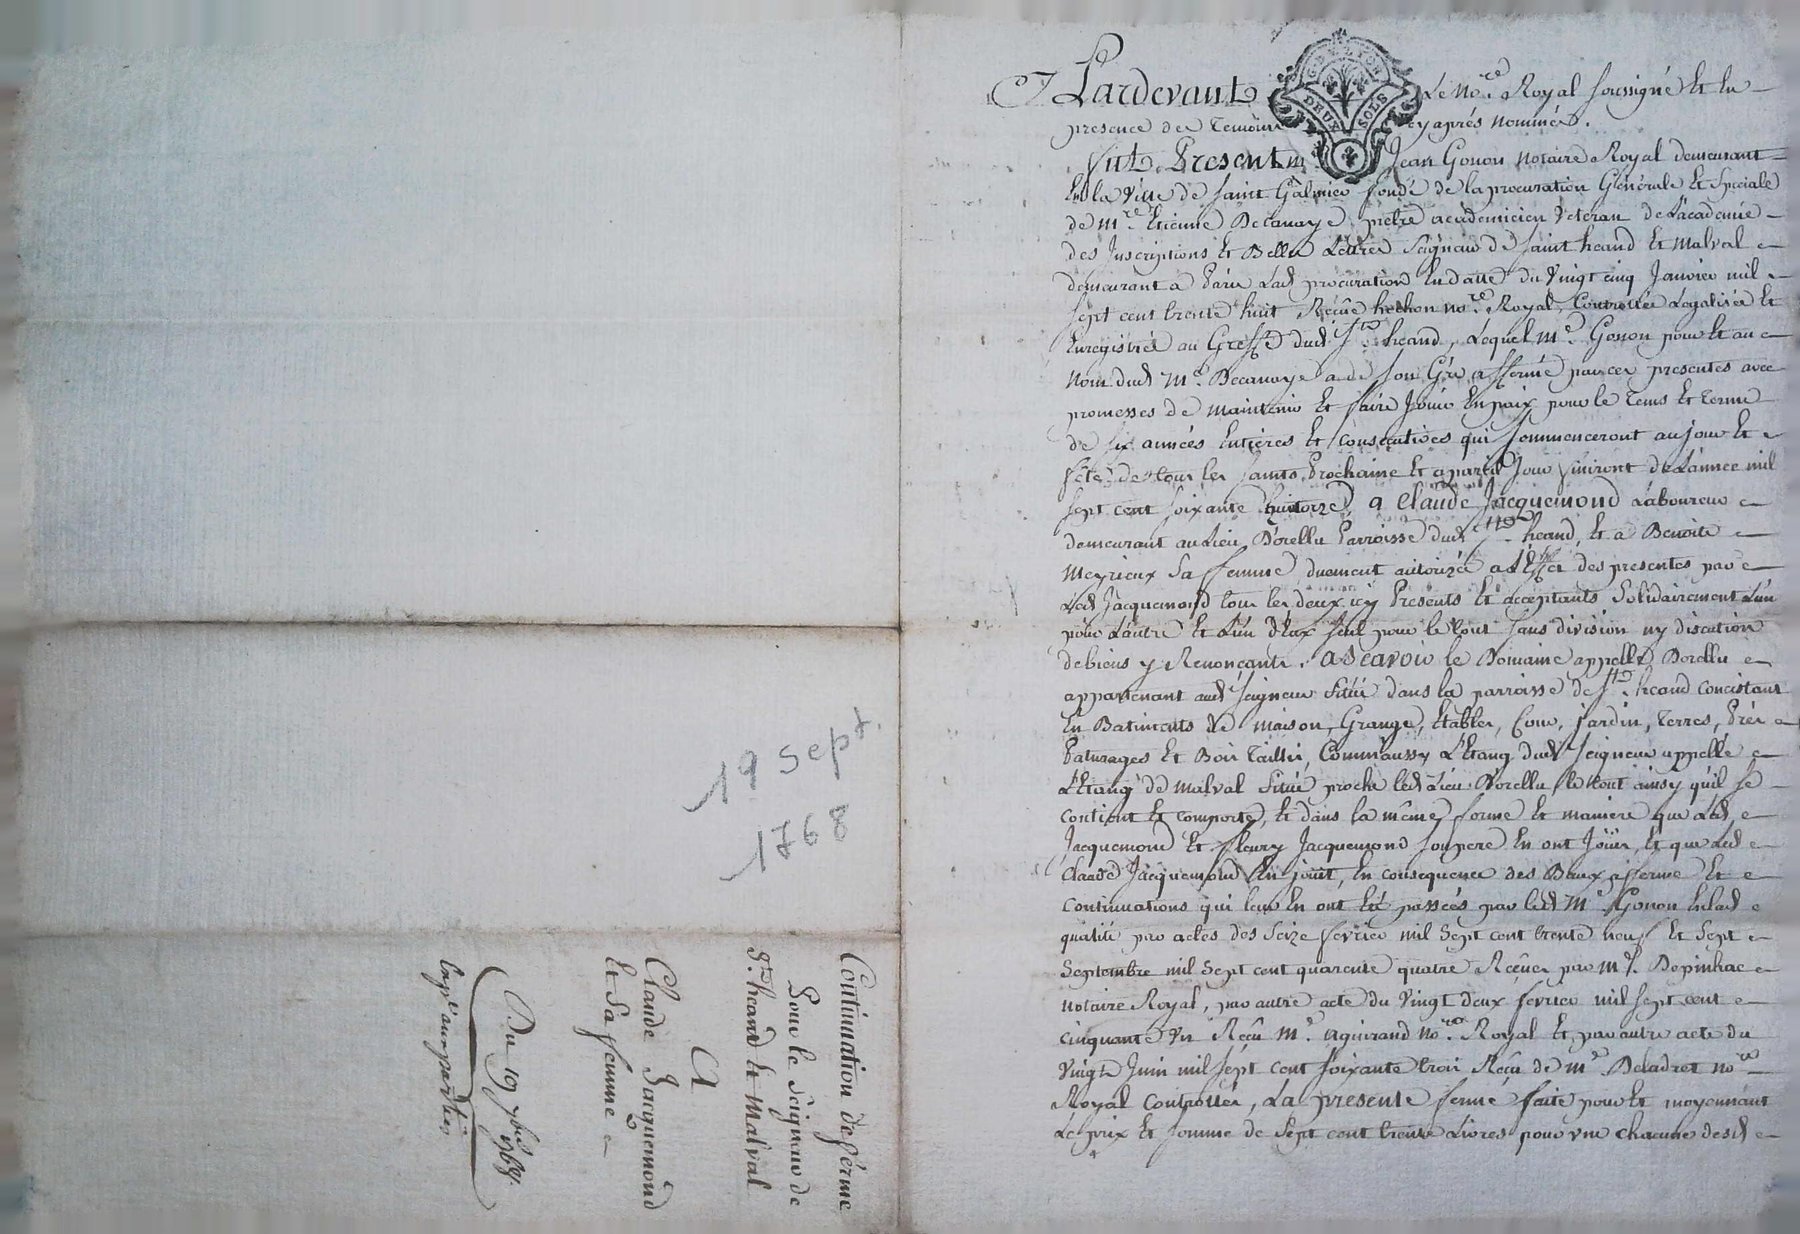 19 Sept.
1768
Continuation de ferme
Pour le Seigneur de
St. heand et Malval
A
Claude Jacquemond
et Sa femme
Du 19 7bre 1768.
Expé. aux parties
G. DE LYON
DEUX SOLS
Pardevant Le No.re Royal soussigné et en
presence des temoins cy aprés nommés.
fut Present Me Jean Gonon Notaire Royal demeurant
en la Ville de Saint Galmier fondé de la procuration Générale et Speciale
de Mre. Etienne Decanaye prêtre academicien Veteran de L'academie
des Inscriptions et Belles Lettres Seigneur de Saint heand et Malval
demeurant a Paris Lad. procuration en datte du Vingt cinq Janvier mil
sept cent trente huit Reçüe hechon nore. Royal, Controllée Legalisée et
Enregistrée au Greffe dud. St. heand, Lequel Me. Gonon pour et au
Nom dud. Mre. Decanaye a de son Gré affermé par ces presentes avec
promesses de maintenir et faire Jouir en paix pour le tems et terme
de six années entières et consecutives qui commenceront au jour et
fête de tous les saints Prochaine et a pareil Jour finiront de L'année mil
sept cent soixante quatorze, a Claude Jacquemond Laboureur
demeurant au Lieu D'orellu Parroisse dud. St. heand, et a Benoite
Meyrieux Sa femme duement autorizée a L'effet des presentes par
Led. Jacquemond tous les deux icy Presents et acceptants Solidairement L'un
pour L'autre et L'un d'Eux seul pour le tout sans division ny discution
de biens y Renonçants. a Scavoir le Domaine appellé Dorellu
appartenant aud. Seigneur Situé dans la parroisse de St. heand concistant
en Batiments de maison, Grange, Etables, Cour, jardin, terres, Prés
Paturages et Bois taillis, Comm'aussy L'Etang dud. Seigneur appellé
L'Etang de Malval Situé proche led. Lieu D'orellu le tout ainsy qu'il se
contient et comporte, et dans la même forme et maniere que Led.
Jacquemond et fleury Jacquemond son pere en ont Joüi, et que Led.
Claude Jacquemond en joüit, en consequence des Baux a ferme et
continuations qui leur en ont été passées par led. Me. Gonon en lad.
qualité par actes des Seize fevrier mil Sept cent trente neuf et Sept
Septembre mil Sept cent quarente quatre Reçües par Me. Depinhac
notaire Royal, par autre acte du Vingt deux fevrier mil sept cent
cinquante un Reçu Me. aguirand No.re Royal et par autre acte du
Vingt Juin mil sept cent soixante trois Reçu de Me. Deladret no.re
Royal Controllés, La presente ferme faite pour et moyennant
Le prix et somme de Sept cent trente Livres pour une chacune desd.